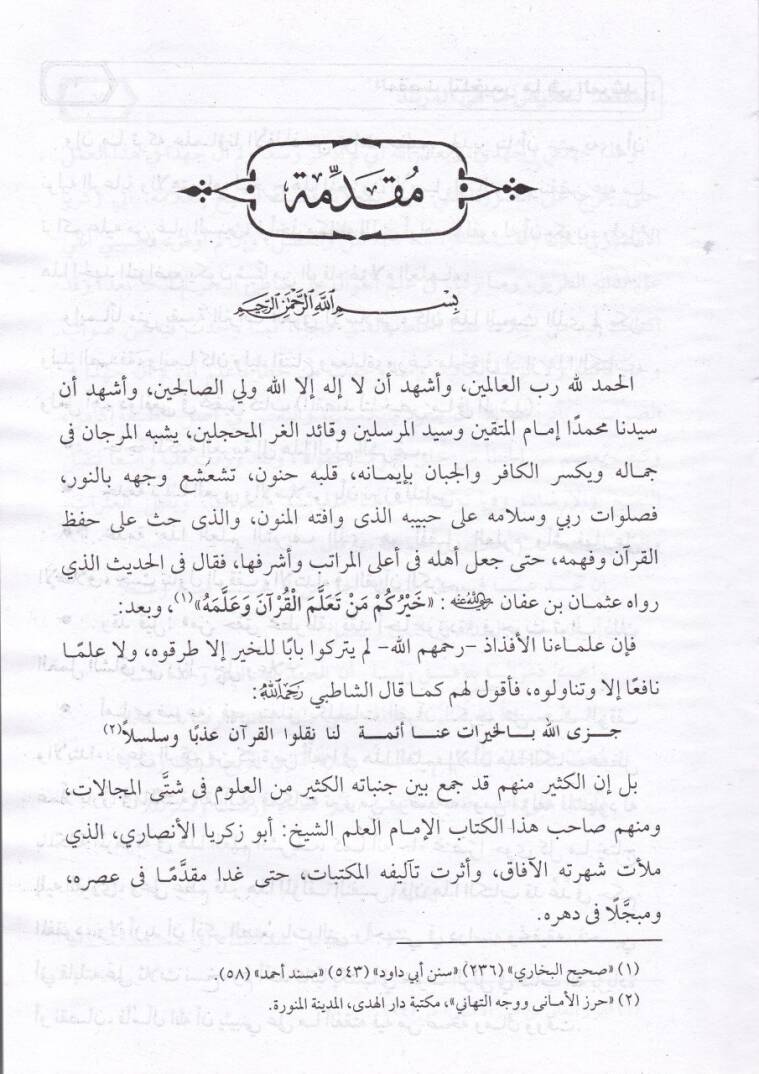 مُقَدِّمَة
بِسْمِ اللَّهِ الرَّحْمَٰنِ الرَّحِيمِ
الحمد لله رب العالمين، وأشهد أن لا إله إلا الله ولي الصالحين، وأشهد أن
سيدنا محمدًا إمام المتقين وسيد المرسلين وقائد الغر المحجلين، يشبه المرجان في
جماله ويكسر الكافر والجبان بإيمانه، قلبه حنون، تشعشع وجهه بالنور،
فصلوات ربي وسلامه على حبيبه الذى وافته المنون، والذى حث على حفظ
القرآن وفهمه، حتى جعل أهله فى أعلى المراتب وأشرفها، فقال فى الحديث الذي
رواه عثمان بن عفان رضي الله عنه: «خَيْرُكُمْ مَنْ تَعَلَّمَ الْقُرْآنَ وَعَلَّمَهُ»(١)، وبعد:
فإن علماءنا الأفذاذ -رحمهم الله- لم يتركوا بابًا للخير إلا طرقوه، ولا علمًا
نافعًا إلا وتناولوه، فأقول لهم كما قال الشاطبي رحمه الله:
جزى الله بالخيرات عنا أئمة لنا نقلوا القرآن عذبًا وسلسلاً(٢)
بل إن الكثير منهم قد جمع بين جنباته الكثير من العلوم في شتَّى المجالات،
ومنهم صاحب هذا الكتاب الإمام العلم الشيخ: أبو زكريا الأنصاري، الذي
ملأت شهرته الآفاق، وأثرت تآليفه المكتبات، حتى غدا مقدَّمًا فى عصره،
ومبجَّلًا فى دهره.
(١) «صحيح البخاري» (٢٣٦) «سنن أبي داود» (٥٤٣) «مسند أحمد» (٥٨).
(٢) «حرز الأمانى ووجه التهاني»، مكتبة دار الهدى، المدينة المنورة.